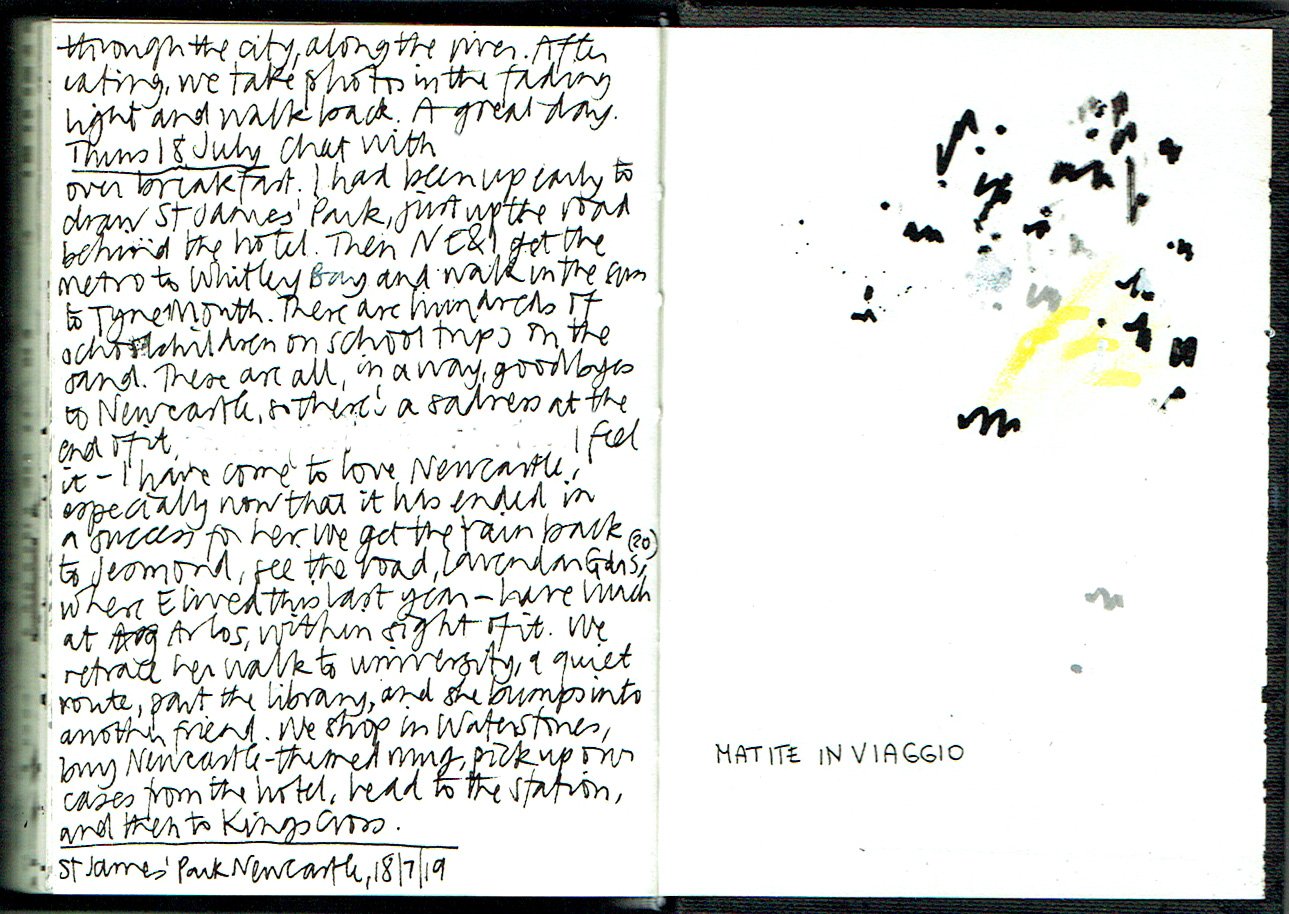 through the city, along the river. After
eating, we take photos in the fading
light and walk back. A great day.
Thurs 18 July Chat with
over breakfast. I had been up early to
draw St James' Park, just up the road
behind the hotel. Then N E & I get the
metro to Whitley Bay and walk in the sun
to TyneMouth. There are hundreds of
schoolchildren on school trips on the
sand. These are all, in a way, goodbyes
to Newcastle, so there's a sadness at the
end of it, I feel
it – I have come to love Newcastle,
especially now that it has ended in
a success for her. We get the train back
to Jesmond, see the road, (20) Lavendar Gdns,
where E lived this last year – have lunch
at Arlos, within sight of it. We
retrace her walk to university, a quiet
route, past the library, and she bumps into
another friend. We shop in Waterstones,
buy Newcastle-themed mug, pick up our
cases from the hotel, head to the station,
and then to Kings Cross.
St James' Park Newcastle, 18/7/19
MATITE IN VIAGGIO